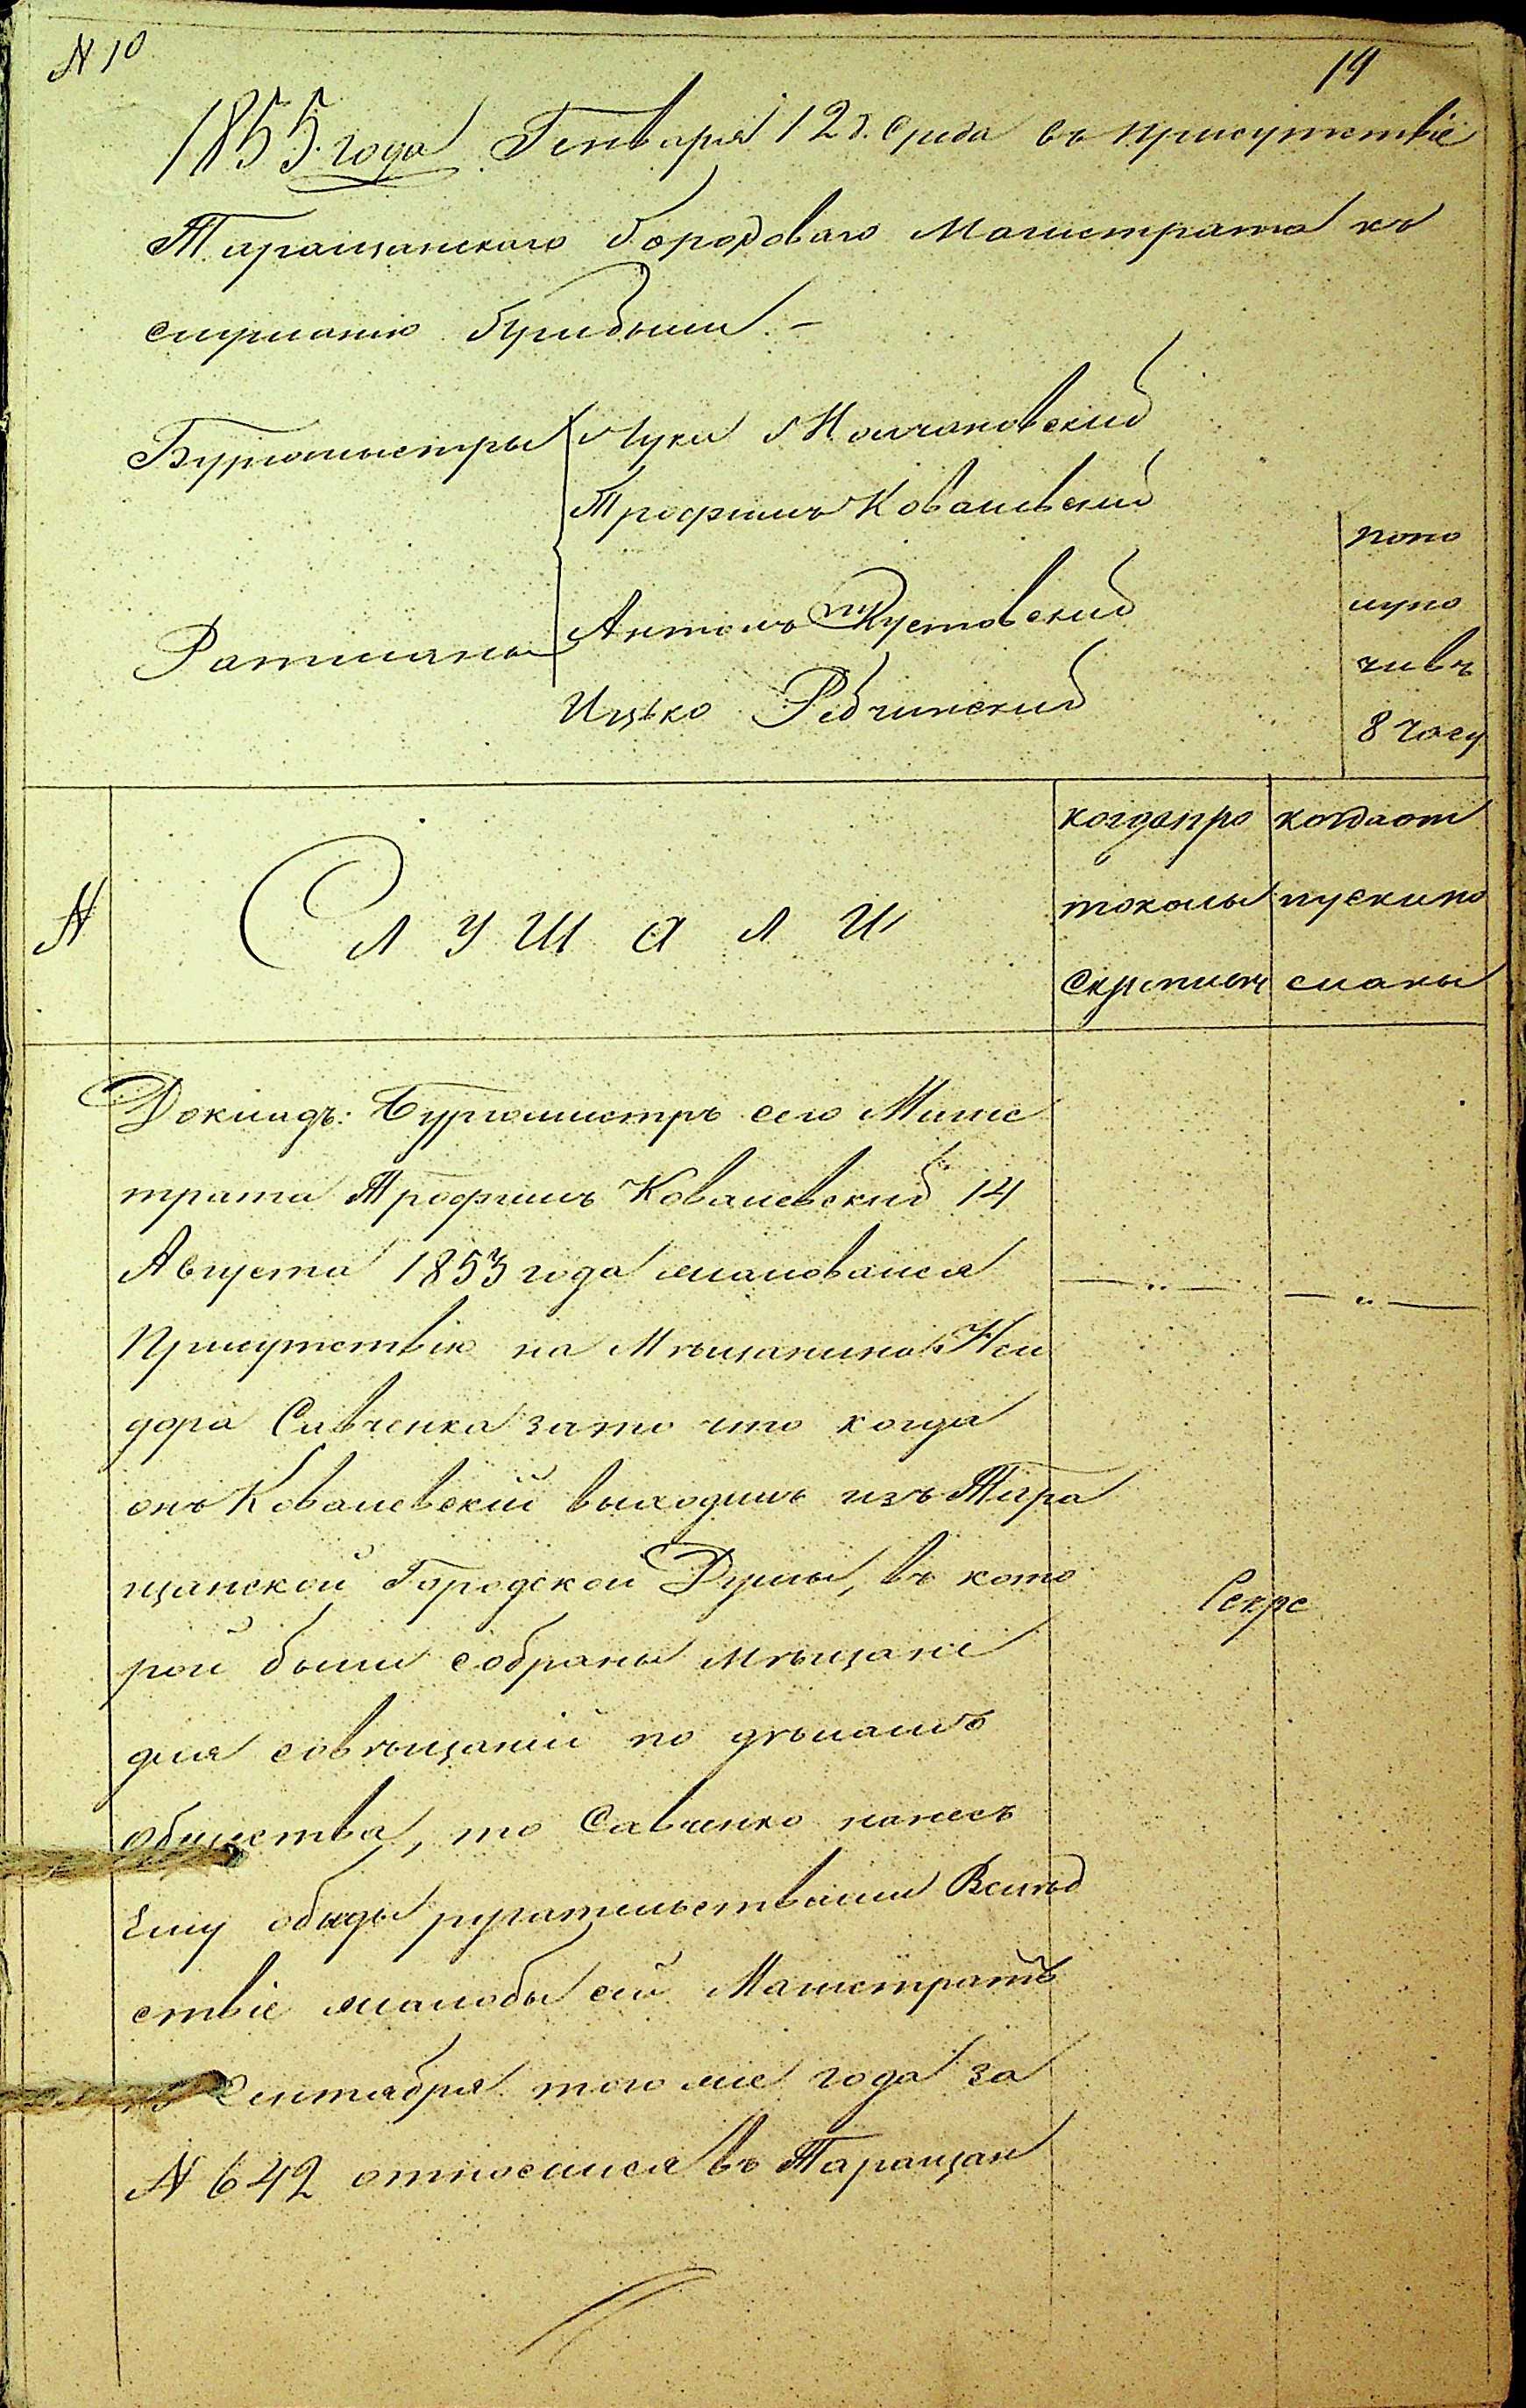 N 10
19
1855. года Генваря 12 д. Среда въ присутствіе
Таращанского Городоваго Магистрата къ
слушанію прибыли. –
Бургомистры Лука Молчановский
Трофимъ Ковальвский
Ратманы Антонъ Пустовский
Ицько Рабчинский
попо
лупо
чивъ
8 часу
N
Слушали
когда про
токолы
скреплен
когда от
пуски по
сланы
Докладъ: Бургомистръ сего Магис
трата Трофимъ Ковалевский 14
Августа 1853 года жаловался
Присутствію на Мѣщанина Иси
дора Савченка зато что когда
онъ Ковалевскій выходилъ изъ Тара
щанской Городской Думы, въ кото
рой были собраны мѣщане
для совѣщаній по дѣламъ
общества, то Савченко нанесъ
Ему обиды ругательствами Вслѣд
ствіе жалобы сей Магистратъ
Сентября того же года за
N 642 относился въ Таращан
Секре